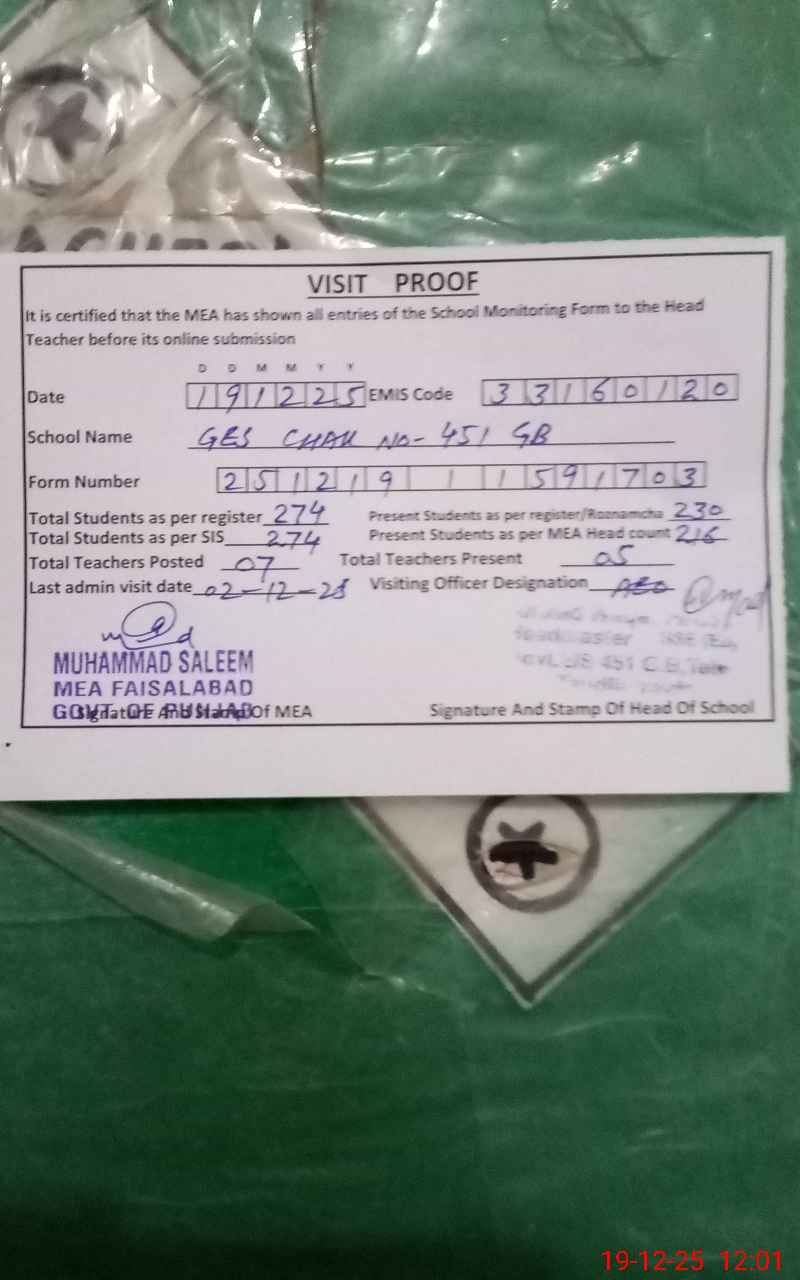 VISIT PROOF
It is certified that the MEA has shown all entries of the School Monitoring Form to the Head
Teacher before its online submission
D D M M Y Y
Date 191225 EMIS Code 33160120
School Name GES CHAK NO- 451 GB
Form Number 251219 1 1591703
Total Students as per register 274 Present Students as per register/Roznamcha 230
Total Students as per SIS 274 Present Students as per MEA Head count 216
Total Teachers Posted 07 Total Teachers Present 05
Last admin visit date 02-12-25 Visiting Officer Designation AEO
MUHAMMAD SALEEM
MEA FAISALABAD
GOVT. OF PUNJAB
Signature And Stamp Of MEA Signature And Stamp Of Head Of School
19-12-25 12:01